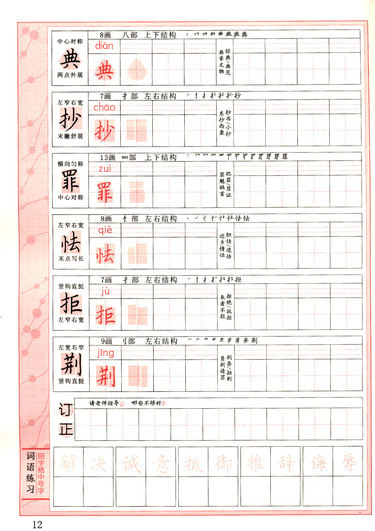 中心对称
典
两点外展
8画 八部 上下结构
diǎn
典
经典 典范
典章文物
左窄右宽
抄
末撇舒展
7画 扌部 左右结构
chāo
抄
抄书 小抄
东抄西袭
横向匀称
罪
中心对称
13画 罒部 上下结构
zuì
罪
犯罪 罪证
罪魁祸首
左窄右宽
怯
末点写长
8画 忄部 左右结构
qiè
怯
胆怯 怯懦
近乡情怯
竖钩直挺
拒
左窄右宽
7画 扌部 左右结构
jù
拒
拒绝 抗拒
来者不拒
左宽右窄
荆
竖钩直挺
9画 刂部 左右结构
jīng
荆
荆条
负荆请罪
订正
请老师指导 哪些不够好?
词语练习
田字格中带字
解决诚意抵御推辞侮辱
12